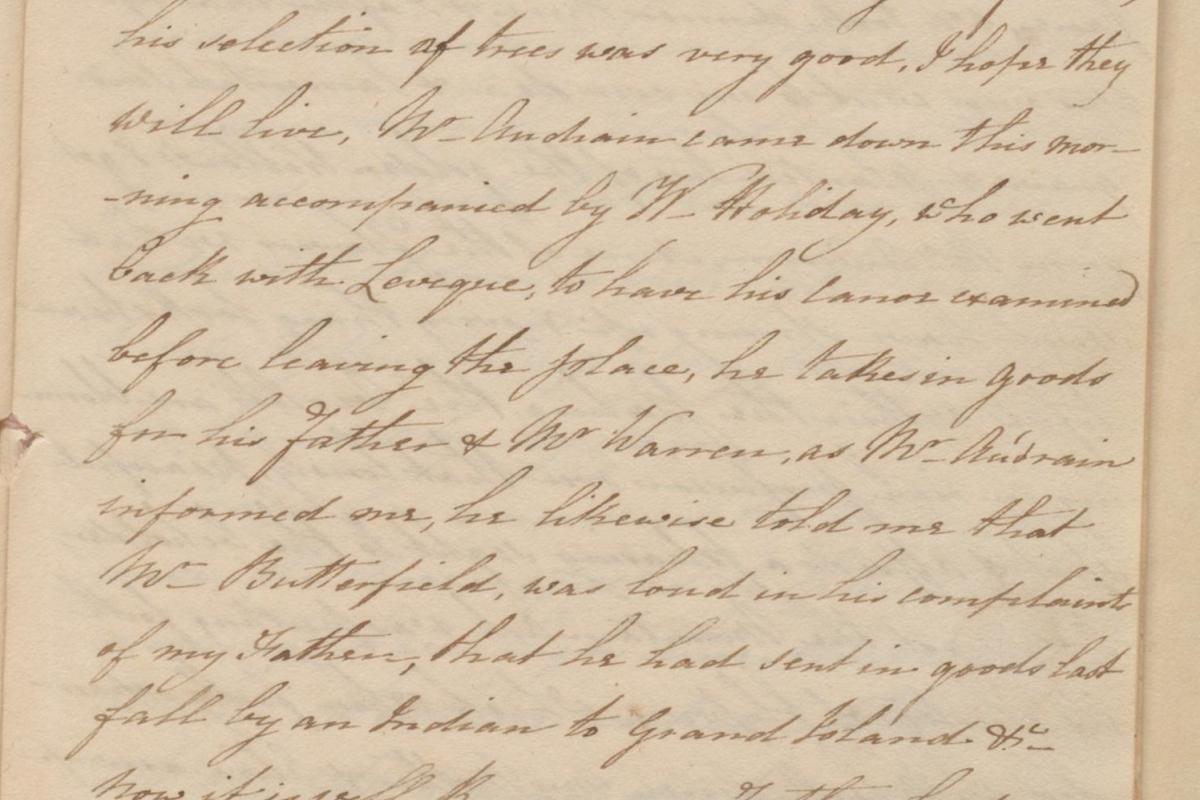 his selection of trees was very good, I hope they
will live, Mr Audrain came down this mor-
-ning accompanied by W- Holiday, who went
back with Leveque, to have his canoe examined
before leaving the place, he takes in goods
for his Father & Mr Warren, as Mr- Audrain
informed me, he likewise told me that
Mr- Butterfield, was loud in his complaints
of my Father, that he had sent in goods last
fall by an Indian to Grand Island &c-
now it is well